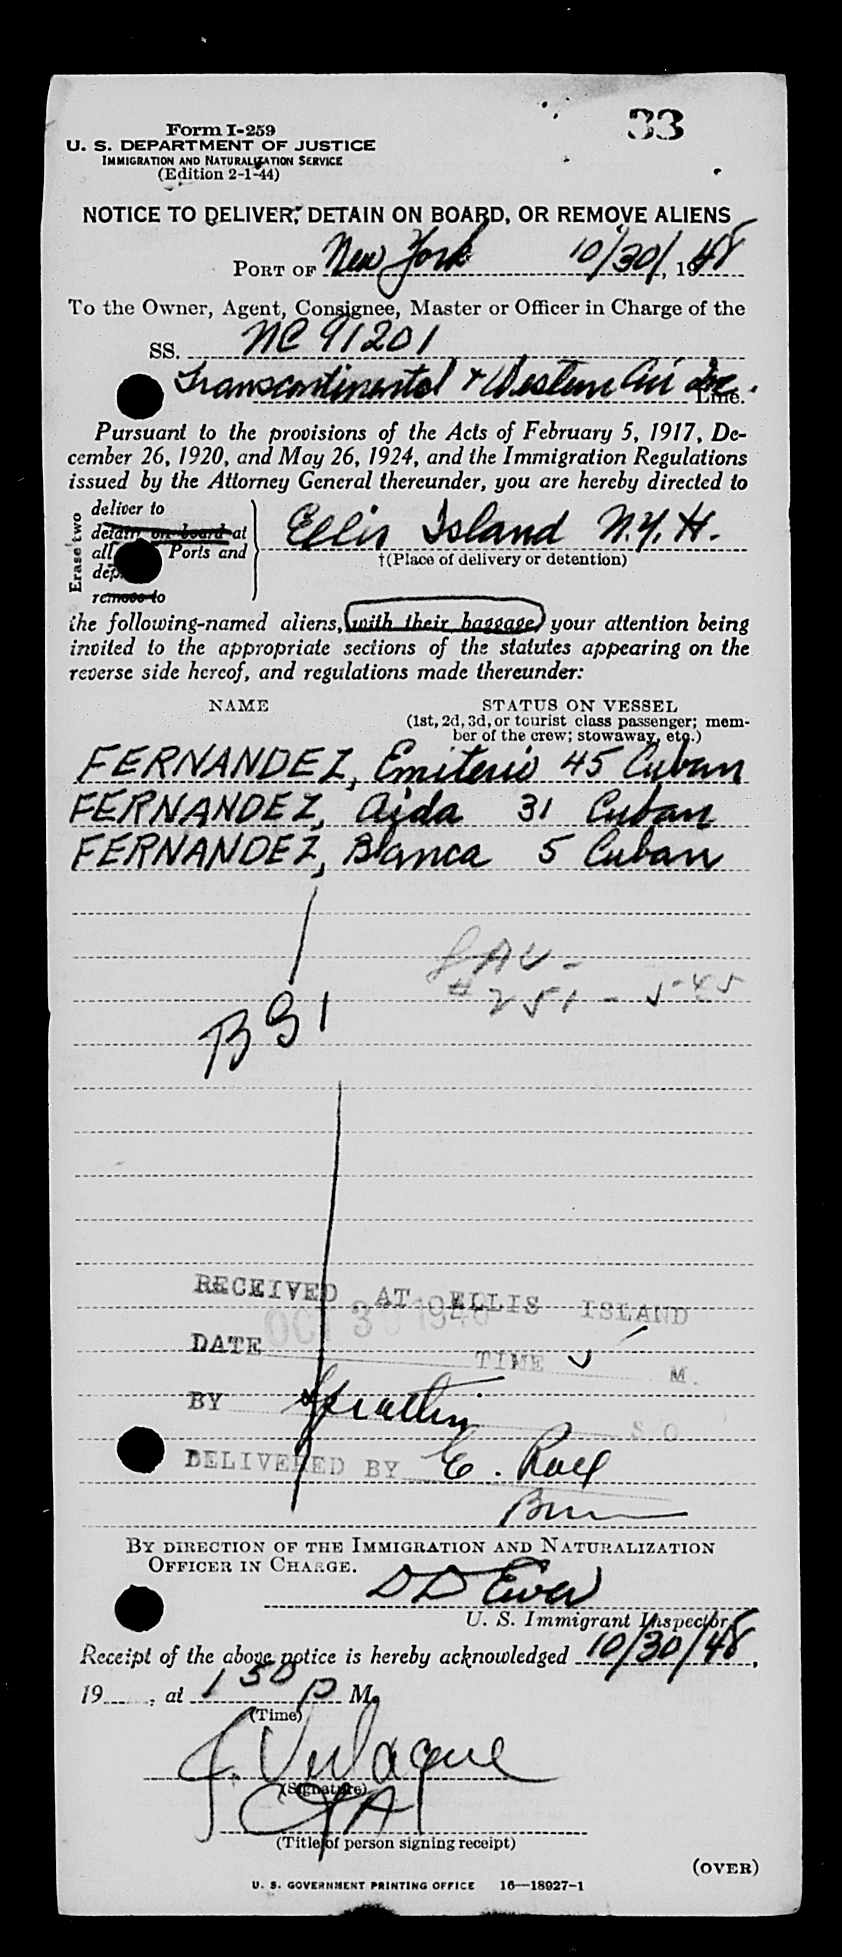 33
Form I-259
U. S. DEPARTMENT OF JUSTICE
IMMIGRATION AND NATURALIZATION SERVICE
(Edition 2-1-44)
NOTICE TO DELIVER, DETAIN ON BOARD, OR REMOVE ALIENS
PORT OF New York 10/30/, 1948
To the Owner, Agent, Consignee, Master or Officer in Charge of the
SS. NC 91201
Transcontinental + Western Air Inc. Line.
Pursuant to the provisions of the Acts of February 5, 1917, De-
cember 26, 1920, and May 26, 1924, and the Immigration Regulations
issued by the Attorney General thereunder, you are hereby directed to
Erase two
deliver to
detain on board at
all Ports and
remove to
Ellis Island N.Y.H.
†(Place of delivery or detention)
the following-named aliens, with their baggage, your attention being
invited to the appropriate sections of the statutes appearing on the
reverse side hereof, and regulations made thereunder:
NAME STATUS ON VESSEL
(1st, 2d, 3d, or tourist class passenger; mem-
ber of the crew; stowaway, etc.)
FERNANDEZ, Emiterio 45 Cuban
FERNANDEZ, Aida 31 Cuban
FERNANDEZ, Blanca 5 Cuban
# 251 - 545
BSI
RECEIVED AT ELLIS ISLAND
OCT 30 1948
DATE TIME 5 M.
BY S O
DELIVERED BY E.
BY DIRECTION OF THE IMMIGRATION AND NATURALIZATION
OFFICER IN CHARGE.
U. S. Immigrant Inspector.
Receipt of the above notice is hereby acknowledged 10/30/48,
19 , at 1 50 p M.
(Time)
(Signature)
(Title of person signing receipt)
(OVER)
U. S. GOVERNMENT PRINTING OFFICE 16—18927-1